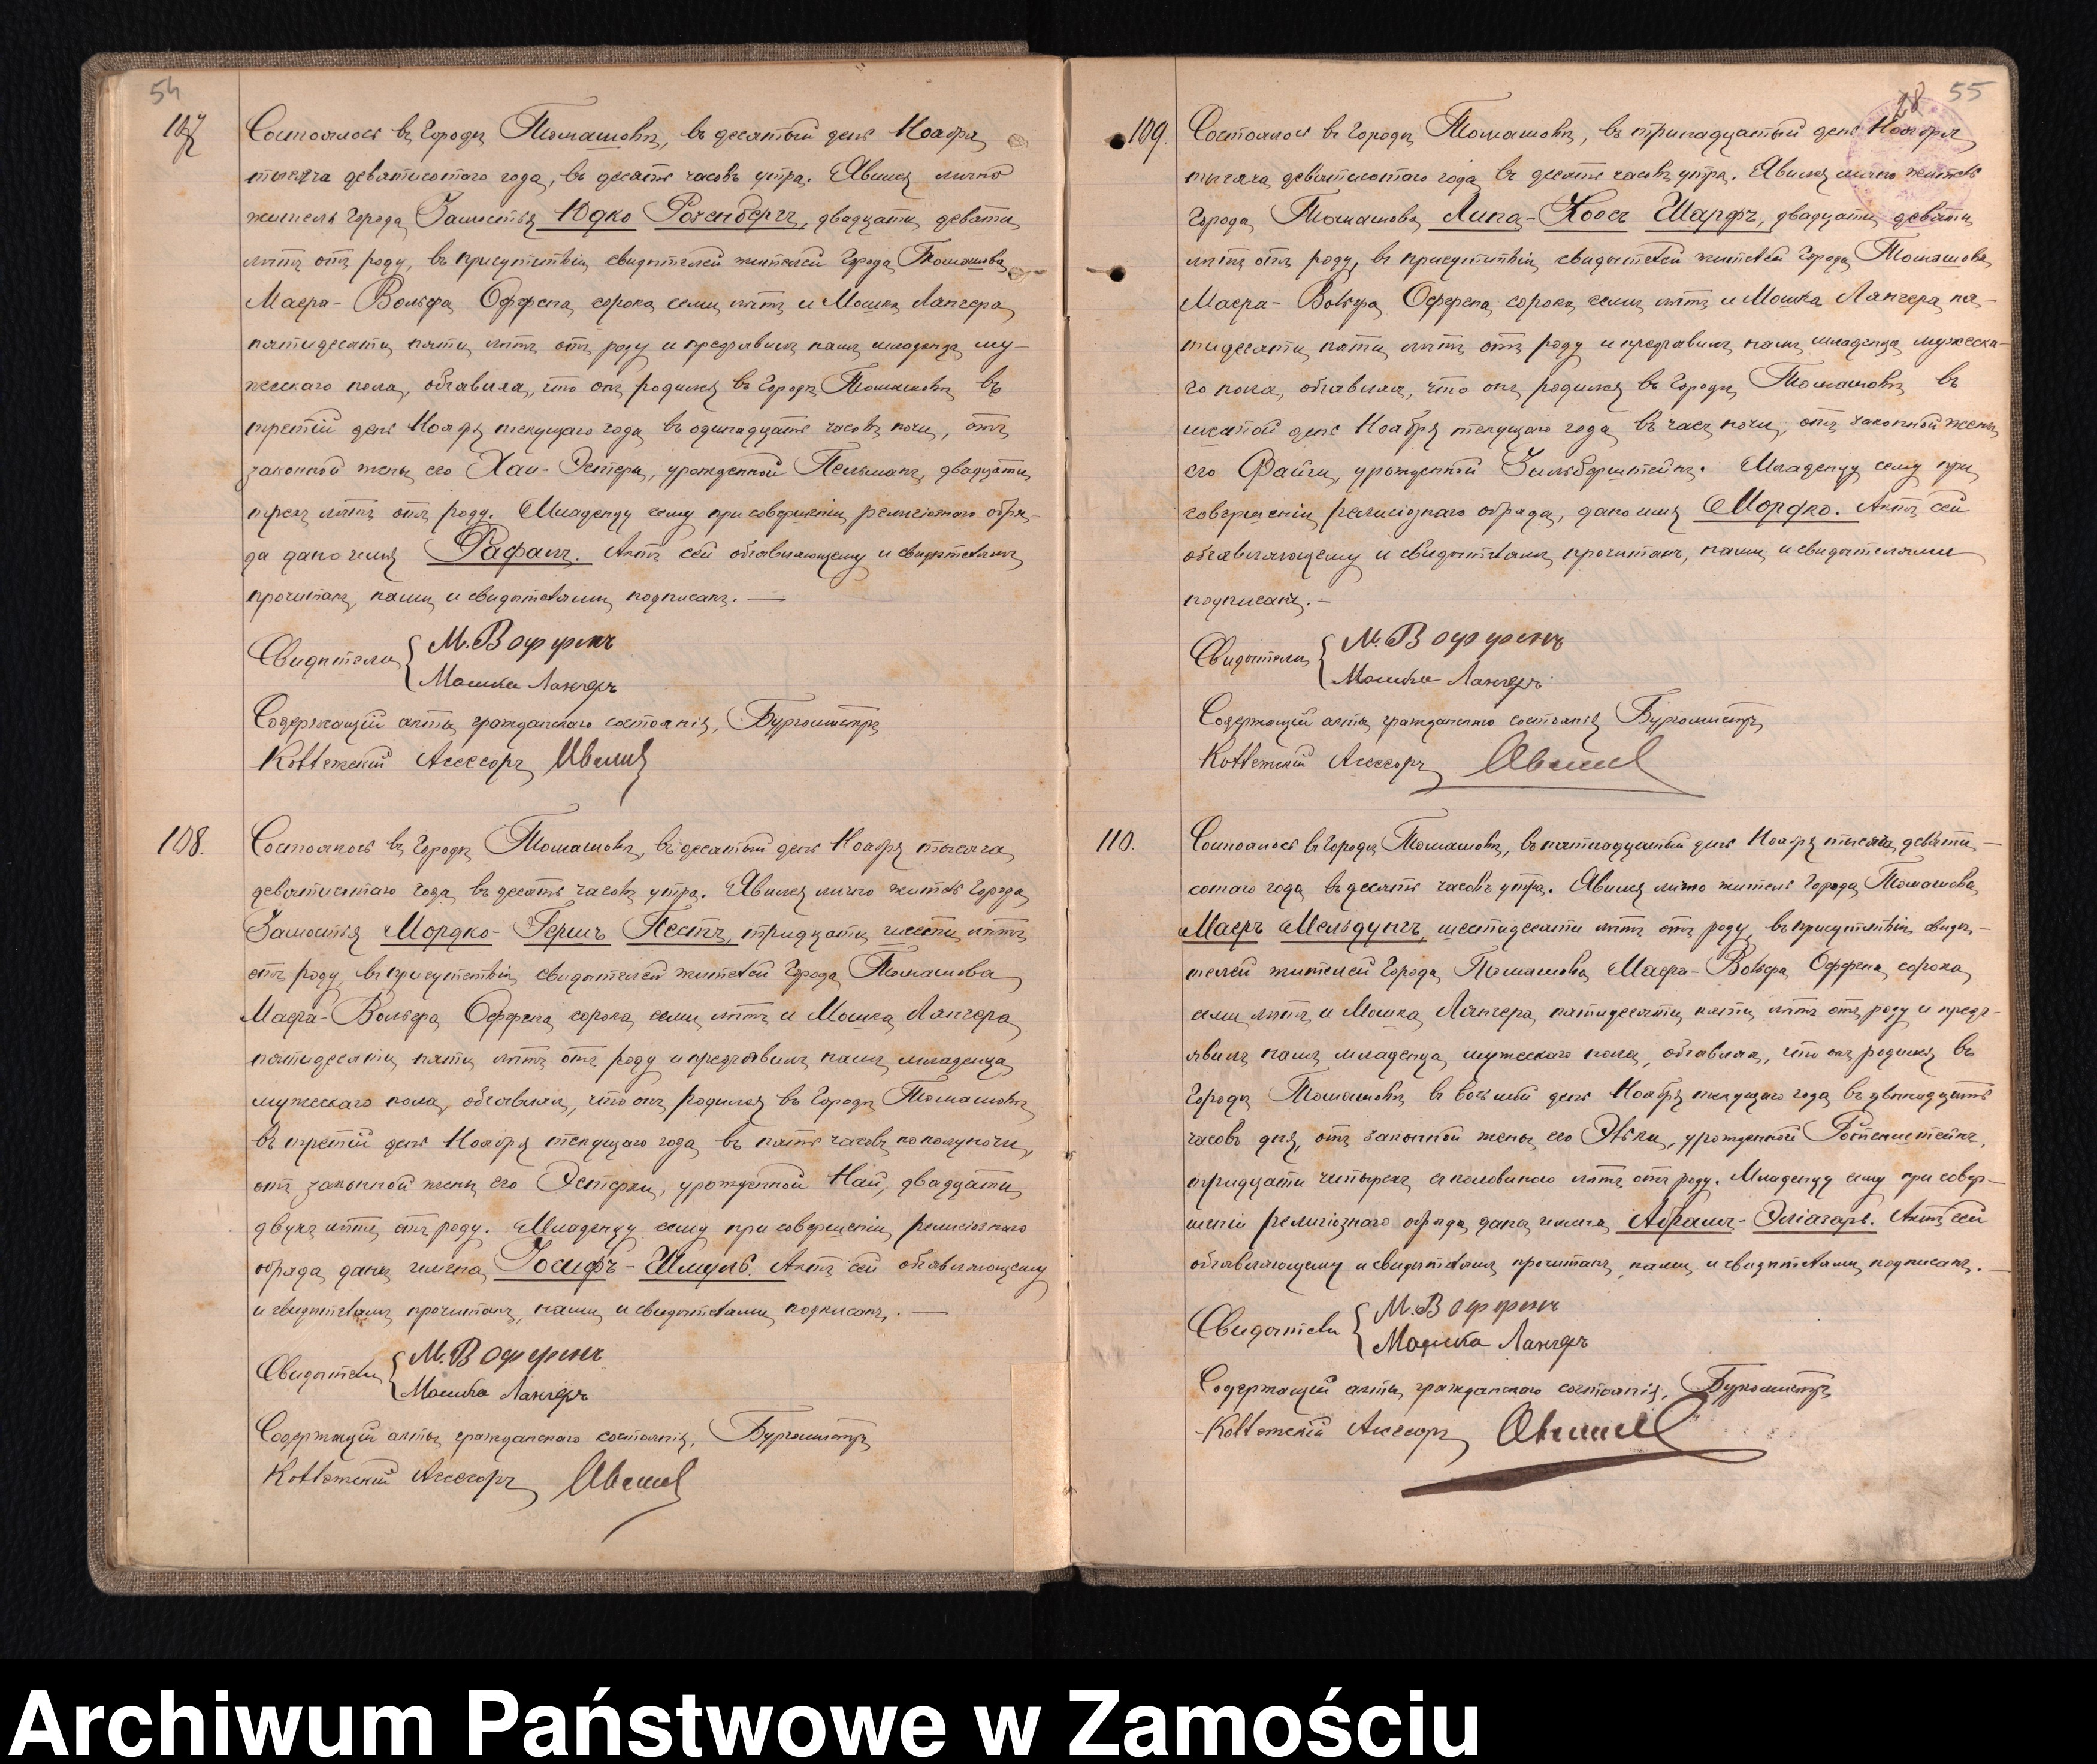 54
107
Состоялось въ городѣ Томашовѣ, въ десятый день Ноября
тысяча девятисотаго года, въ десять часовъ утра. Явился лично
житель города Замостья Юдко Розенбергъ, двадцати девяти
лѣтъ отъ роду, въ присутствіи свидѣтелей жителей города Томашова
Маера-Вольфа Оффена сорока семи лѣтъ и Мошка Лангера
пятидесяти пяти лѣтъ отъ роду и предъявилъ намъ младенца му-
жескаго пола, объявляя, что онъ родился въ городѣ Томашовѣ въ
третій день Ноября текущаго года въ одинадцать часовъ ночи, отъ
законной жены его Хаи-Эстеры, урожденной Пельманъ, двадцати
трехъ лѣтъ отъ роду. Младенцу сему при совершеніи религіознаго обря-
да дано имя Рафаилъ. Актъ сей объявляющему и свидѣтелямъ
прочитанъ, нами и свидѣтелями подписанъ. —
Свидѣтели { М. В Оффенъ
Мошка Лангеръ
Содержащій акты гражданскаго состоянія, Бургомистръ
Коллежскій Асессоръ
108.
Состоялось въ городѣ Томашовѣ, въ десятый день Ноября тысяча
девятисотаго года, въ десять часовъ утра. Явился лично житель города
Замостья Мордко-Гершъ Пестъ, тридцати шести лѣтъ
отъ роду, въ присутствіи свидѣтелей жителей города Томашова
Маера-Вольфа Оффена сорока семи лѣтъ и Мошка Лангера
пятидесяти пяти лѣтъ отъ роду и предъявилъ намъ младенца
мужескаго пола, объявляя, что онъ родился въ городѣ Томашовѣ
въ третій день Ноября текущаго года въ пять часовъ пополуночи,
отъ законной жены его Эстерки, урожденной Най, двадцати
двухъ лѣтъ отъ роду. Младенцу сему при совершеніи религіознаго
обряда даны имена Іосифъ-Шмуль. Актъ сей объявляющему
и свидѣтелямъ прочитанъ, нами и свидѣтелями подписанъ. —
Свидѣтели { М. В Оффенъ
Мошка Лангеръ
Содержащій акты гражданскаго состоянія, Бургомистръ
Коллежскій Асессоръ
28 55
109.
Состоялось въ городѣ Томашовѣ, въ тринадцатый день Ноября
тысяча девятисотаго года въ десять часовъ утра. Явился лично житель
города Томашова Липа-Хоосъ Шарфъ, двадцати девяти
лѣтъ отъ роду, въ присутствіи свидѣтелей жителей города Томашова
Маера-Вольфа Оффена сорока семи лѣтъ и Мошка Лангера пя-
тидесяти пяти лѣтъ отъ роду и предъявилъ намъ младенца мужеска-
го пола, объявляя, что онъ родился въ городѣ Томашовѣ въ
шестой день Ноября текущаго года въ часъ ночи, отъ законной жены
его Файги, урожденной Зильберштейнъ. Младенцу сему при
совершеніи религіознаго обряда, дано имя Мордко. Актъ сей
объявляющему и свидѣтелямъ прочитанъ, нами и свидѣтелями
подписанъ. —
Свидѣтели { М. В Оффенъ
Мошка Лангеръ
Содержащій акты гражданскаго состоянія Бургомистръ
Коллежскій Асессоръ
110.
Состоялось въ городѣ Томашовѣ, въ пятнадцатый день Ноября тысяча девяти-
сотаго года въ десять часовъ утра. Явился лично житель города Томашова
Маеръ Мельдунгъ, шестидесяти лѣтъ отъ роду, въ присутствіи свидѣ-
телей жителей города Томашова Маера-Вольфа Оффена сорока
семи лѣтъ и Мошка Лангера пятидесяти пяти лѣтъ отъ роду и предъ-
явилъ намъ младенца мужескаго пола, объявляя, что онъ родился въ
городѣ Томашовѣ въ восьмой день Ноября текущаго года въ двѣнадцать
часовъ дня, отъ законной жены его Эльки, урожденной Ротенштейнъ,
тридцати четырехъ съ половиною лѣтъ отъ роду. Младенцу сему при совер-
шеніи религіознаго обряда даны имена Абрамъ-Эліазаръ. Актъ сей
объявляющему и свидѣтелямъ прочитанъ, нами и свидѣтелями подписанъ. —
Свидѣтели { М. В Оффенъ
Мошка Лангеръ
Содержащій акты гражданскаго состоянія, Бургомистръ
Коллежскій Асессоръ
Archiwum Państwowe w Zamościu